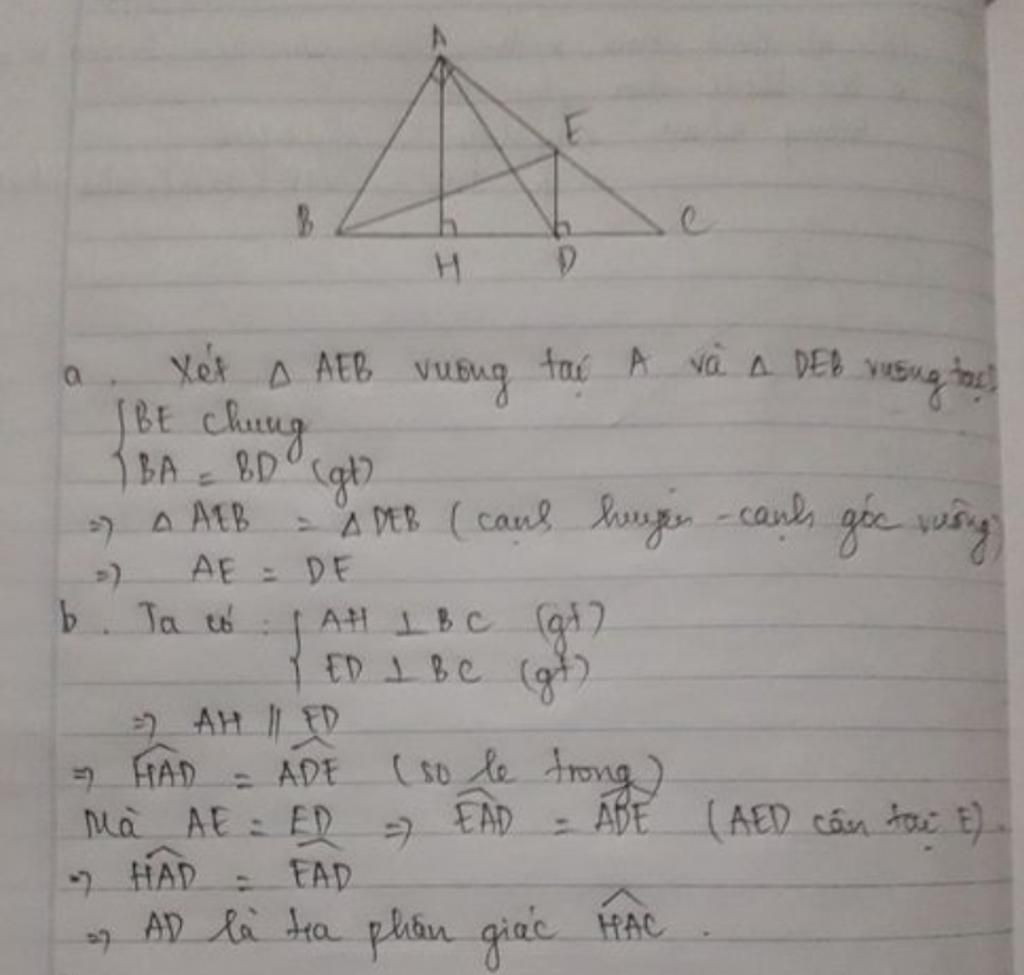 A
E
B
C
H
D
a. Xét Δ AEB vuông tại A và Δ DEB vuông tại
BE chung
BA = BD (gt)
=> Δ AEB = Δ DEB (cạnh huyền - cạnh góc vuông)
=> AE = DE
b. Ta có: AH ⊥ BC (gt)
ED ⊥ BC (gt)
=> AH // ED
=> \widehat{HAD} = \widehat{ADE} (so le trong)
Mà AE = ED => \widehat{EAD} = \widehat{ADE} (AED cân tại E).
=> \widehat{HAD} = \widehat{EAD}
=> AD là tia phân giác \widehat{HAC}.